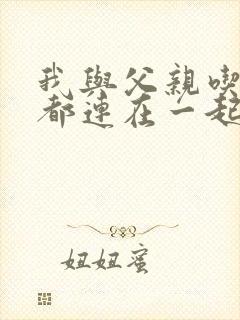 我與父親喫
都連在一起
妞妞蜜